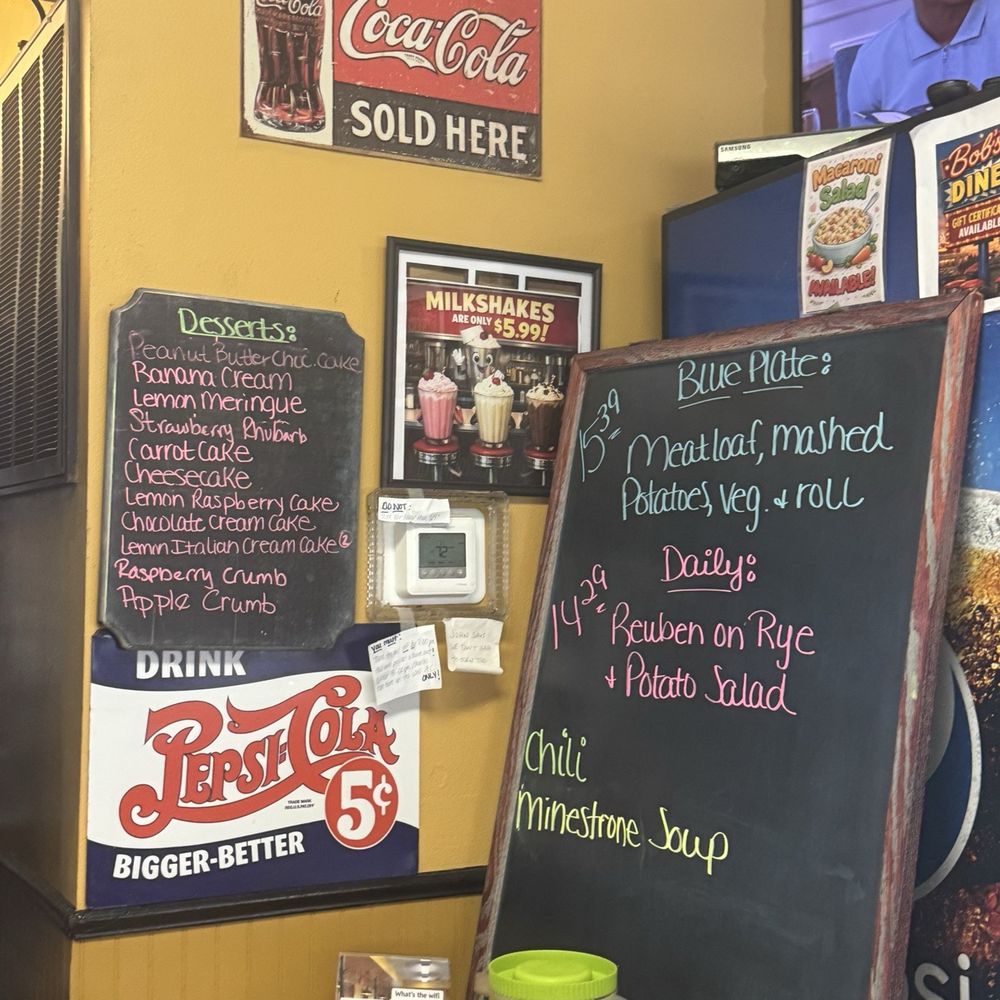 Coca-Cola
Coca-Cola
SOLD HERE
SAMSUNG
Macaroni
Salad
AVAILABLE!
Bob's
DINE
GIFT CERTIFICA
AVAILABL
MILKSHAKES
ARE ONLY $5.99!
Desserts:
Peanut Butter Choc. Cake
Banana Cream
Lemon Meringue
Strawberry Rhubarb
Carrot Cake
Cheesecake
Lemon Raspberry Cake
Chocolate cream cake
Lemon Italian Cream Cake 2
Raspberry Crumb
Apple Crumb
DO NOT:
72
You must:
ONLY!
DRINK
PEPSI-COLA
TRADE MARK
5¢
BIGGER-BETTER
Blue Plate:
15 39
Meatloaf, mashed
Potatoes, veg. & roll
Daily:
14 29
Reuben on Rye
& Potato Salad
Chili
Minestrone Soup
What's the wifi
si